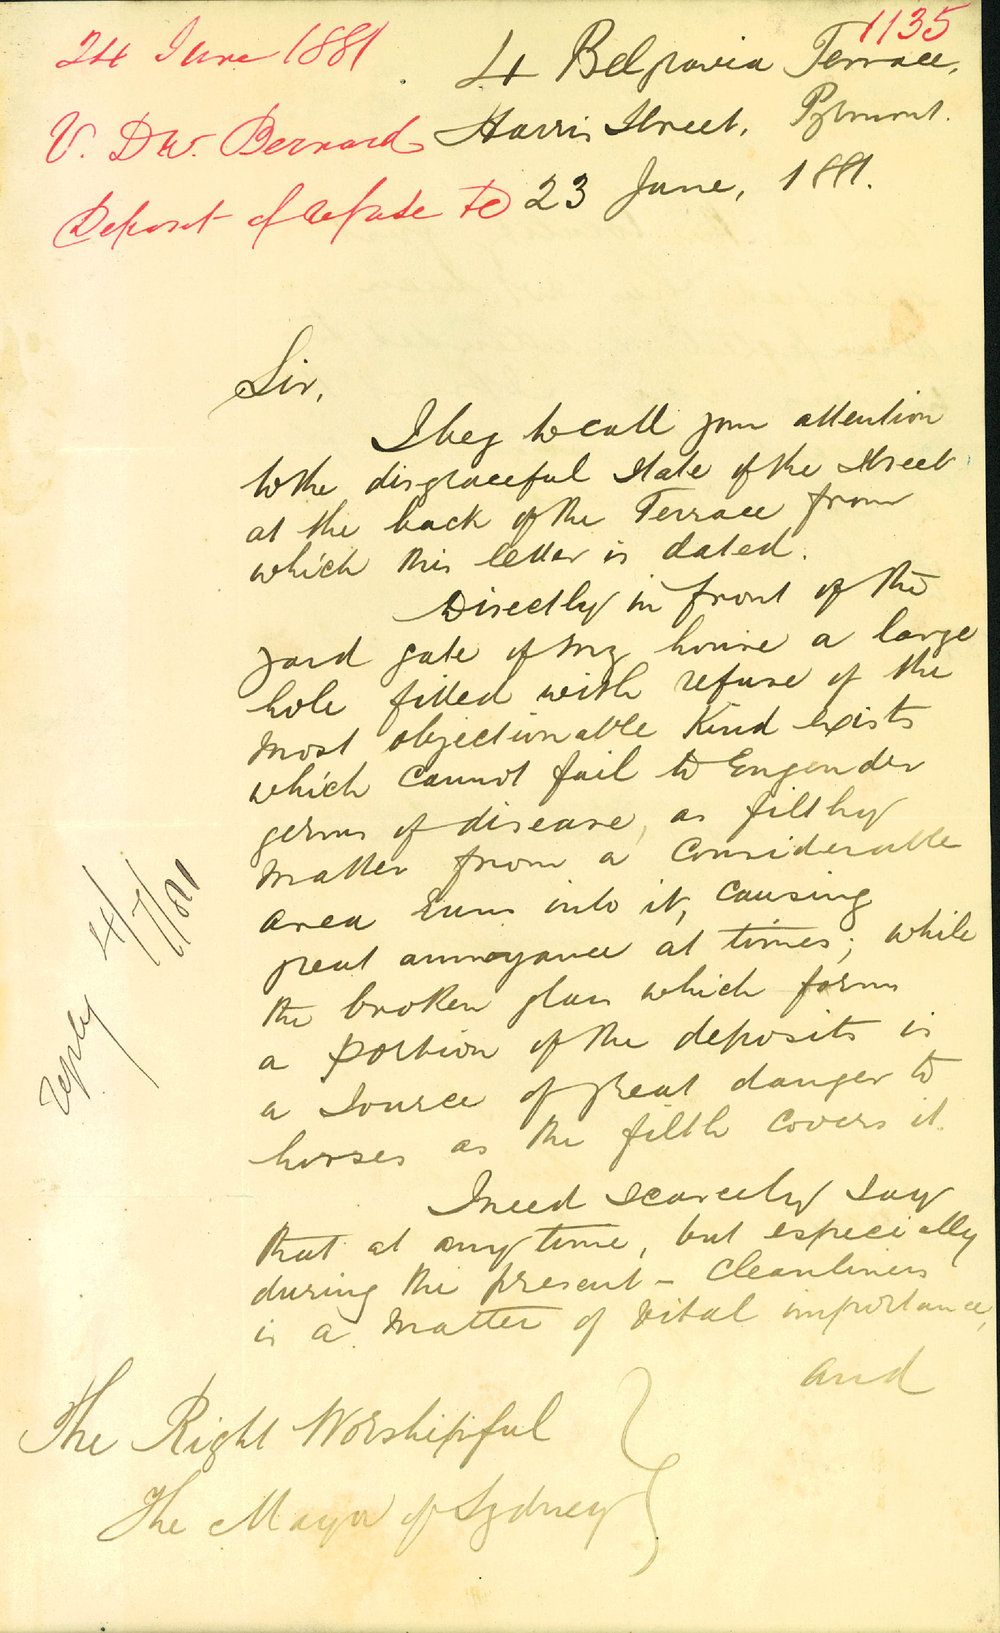 1135
24 June 1881
V. D. W. Bernard
Deposit of refuse &c
4 Belgravia Terrace,
Harris Street, Pyrmont.
23 June, 1881.
Sir,
I beg to call your attention
to the disgraceful state of the street
at the back of the Terrace from
which this letter is dated.
Directly in front of the
yard gate of my house a large
hole filled with refuse of the
most objectionable kind exists
which cannot fail to engender
germs of disease, as filthy
matter from a considerable
area runs into it, causing
great annoyance at times; while
the broken glass which forms
a portion of the deposits is
a source of great danger to
horses as the filth covers it.
I need scarcely say
that at any time, but especially
during the present – cleanliness
is a matter of vital importance,
and
The Right Worshipful
The Mayor of Sydney
reply 4/7/81